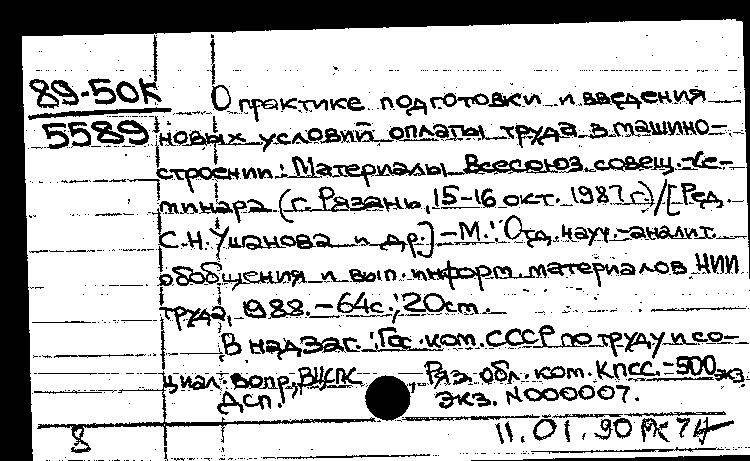 89-50К
5589
О практике подготовки и введения
новых условий оплаты труда в машино-
строении: Материалы Всесоюз. совещ.-се-
минара (г. Рязань, 15-16 окт. 1987 г.)/[Ред.
С.Н. Ушанова и др.] - М.: Отд. науч.-аналит.
обобщения и вып. информ. материалов НИИ
труда, 1988. - 64с.; 20см.
В надзаг.: Гос. ком. СССР по труду и со-
циал. вопр., ВЦСПС, Ряз. обл. ком. КПСС. - 500 экз
Дсп. экз. N000007.
8
11.01.90